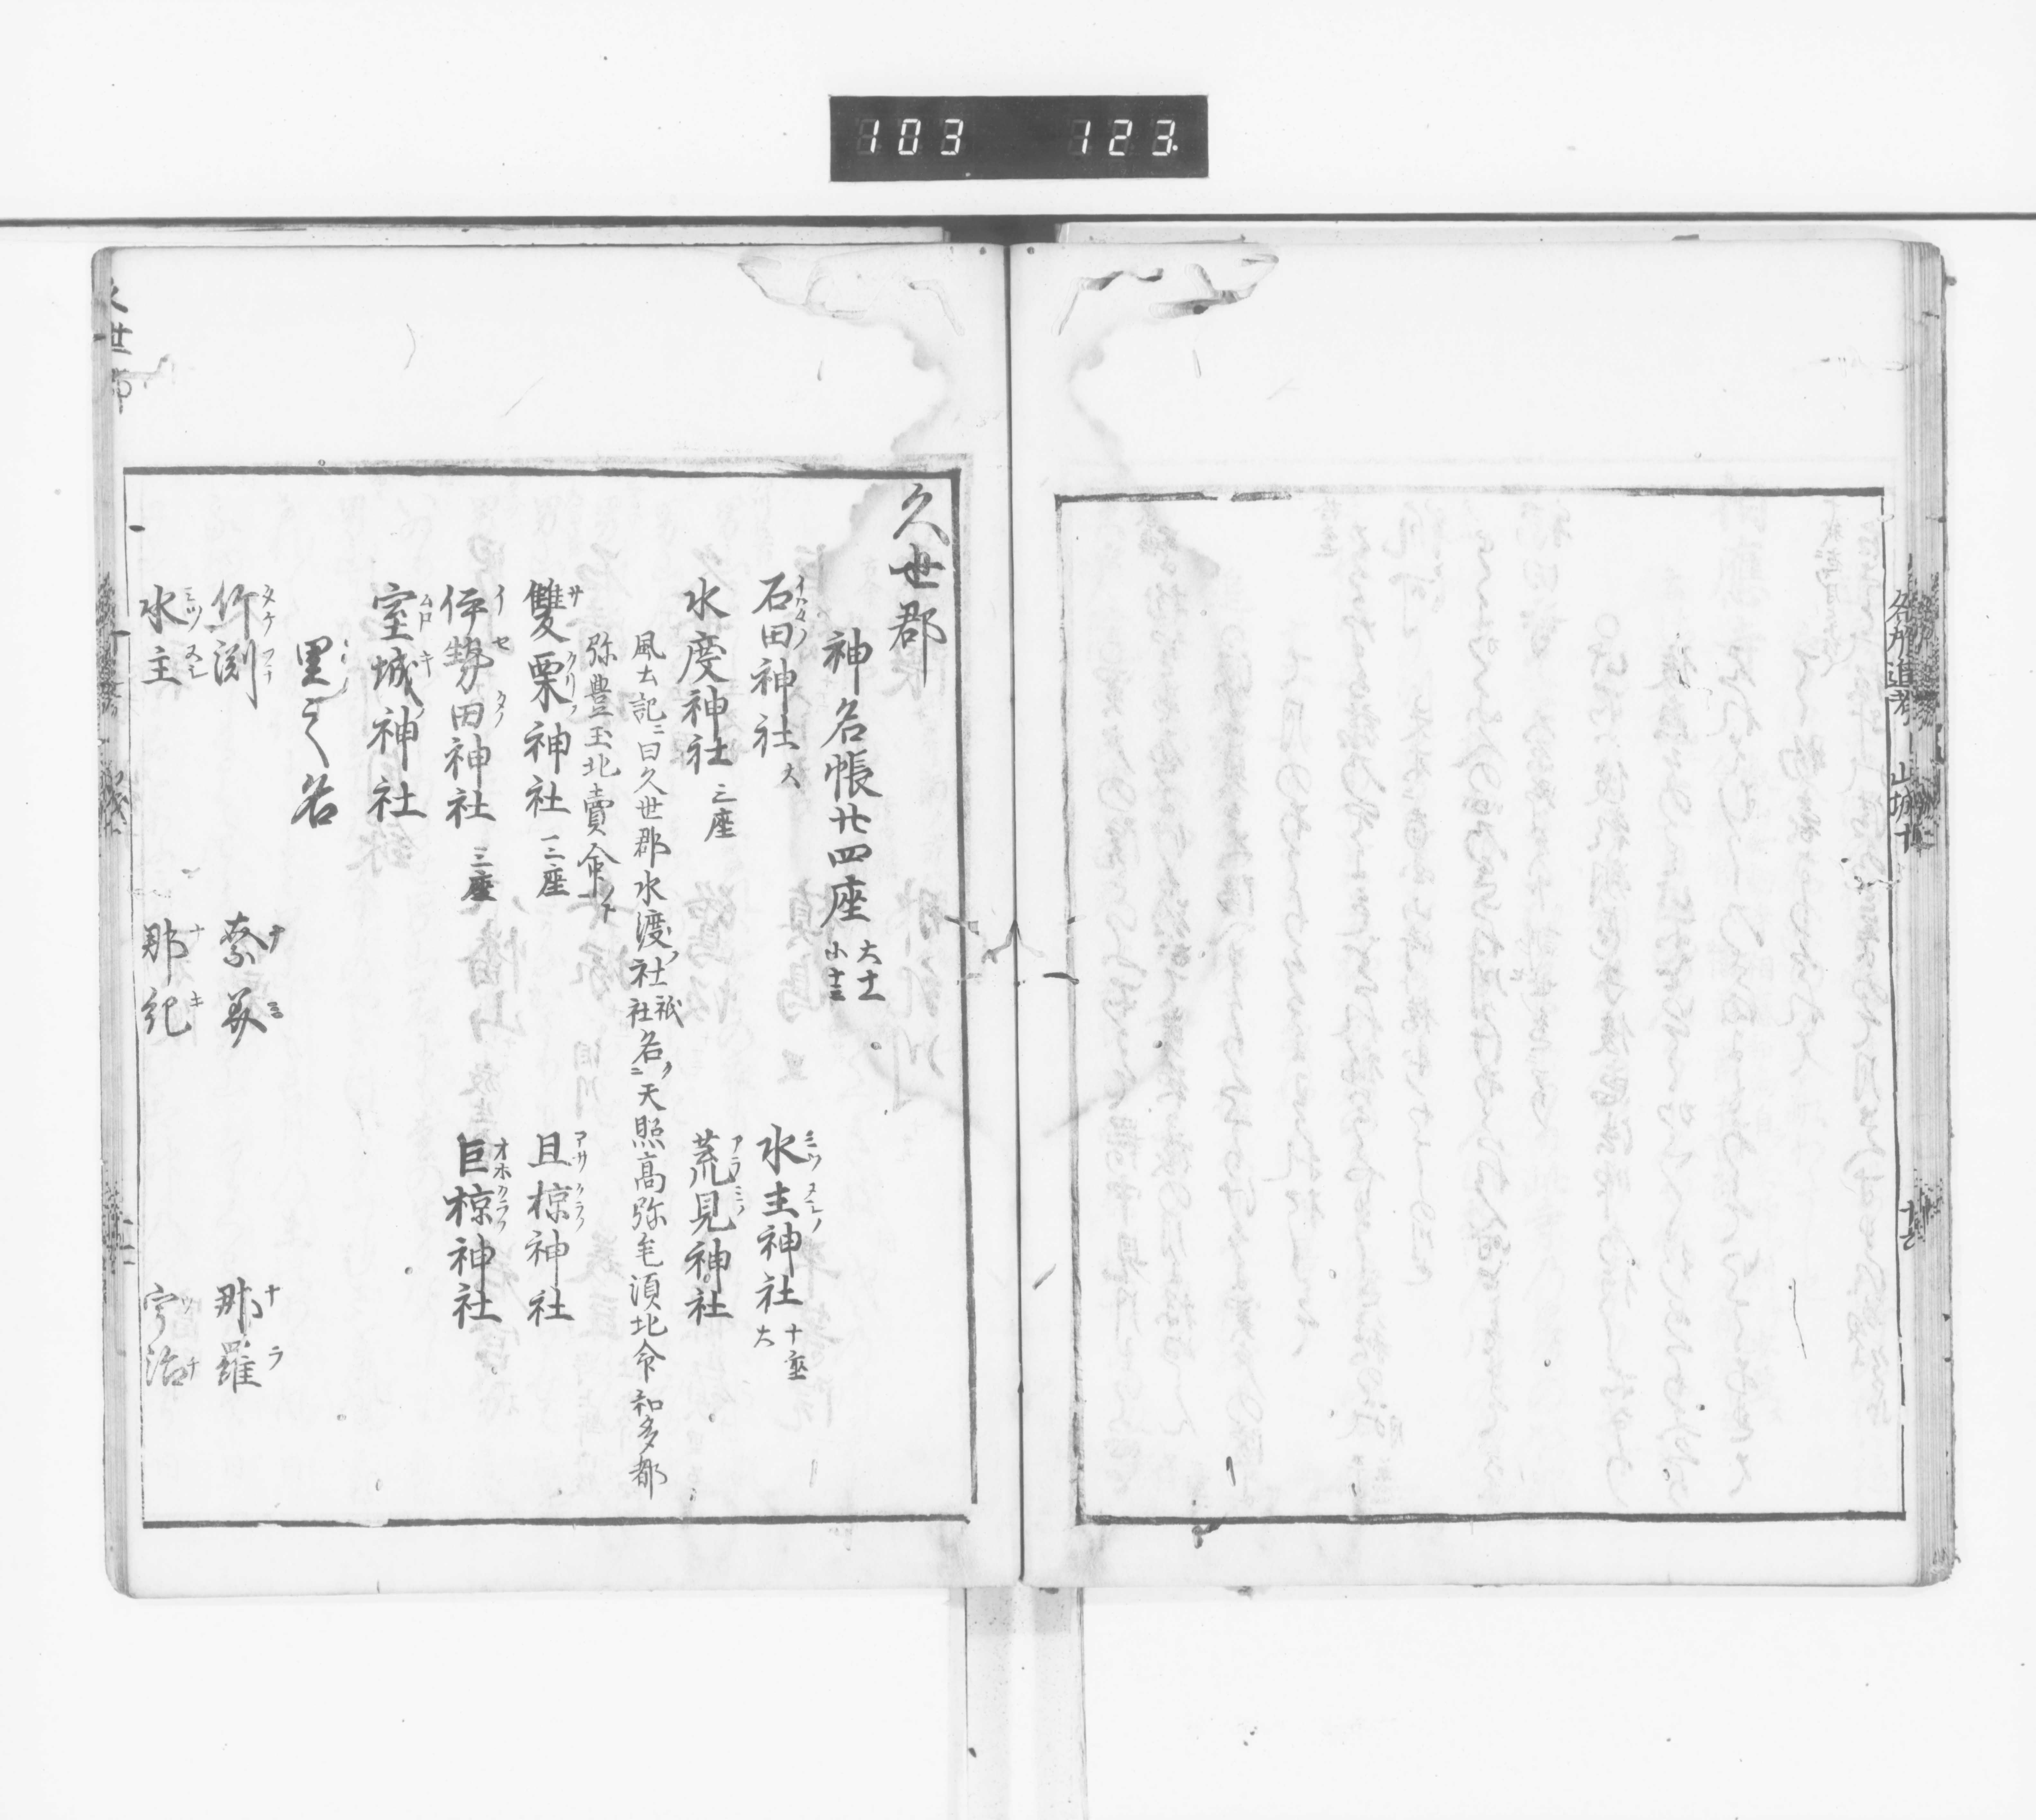 103 123
名所追考 山城十
久世郡
神名帳廿四座 大十一 小十三
石田神社 大
水主神社 十座 大
水度神社 三座
荒見神社
風土記ニ曰久世郡水渡ノ社祇社名ノニ天照高弥牟須比命和多都
弥豊玉比賣命ノト
雙栗神社 三座
且椋神社
伊勢田神社 三座
巨椋神社
室城神社
里之名
竹渕 奈美 那羅
水主 那紀 宇治
久世郡